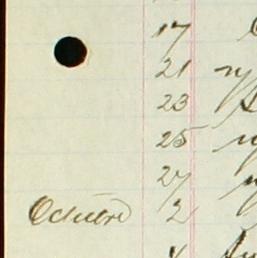 17
21
23
25
27
Octubre 2
4